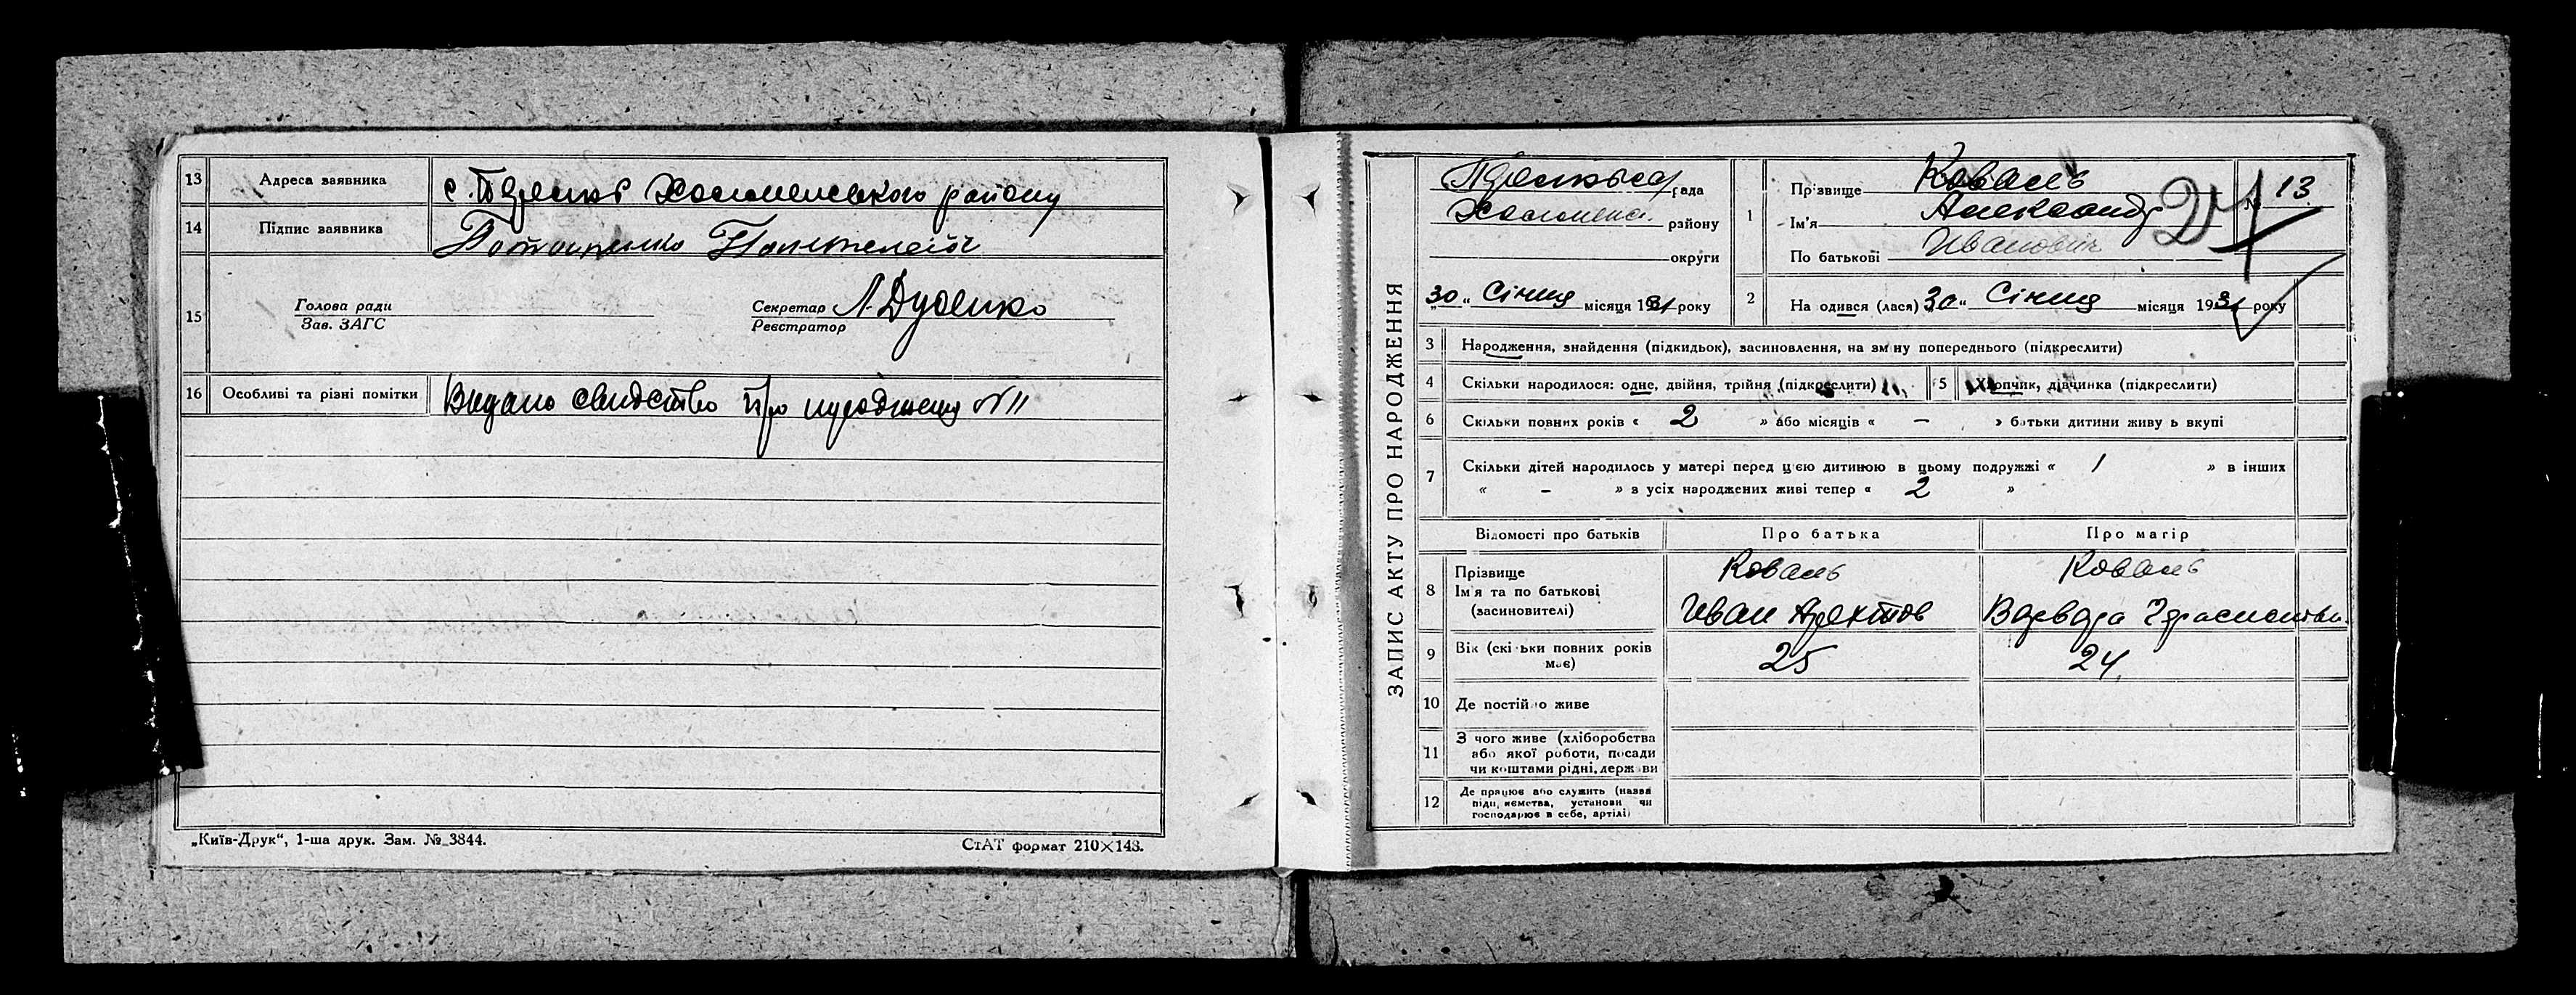 13 Адреса заявника с. Ядлов Холменського району
14 Підпис заявника Потапенко Пантелей
15 Голова ради
Зав. ЗАГС
Секретар Л Дуденко
Реєстратор
16 Особливі та різні помітки Видано свидство про народженя №11
„Київ-Друк“, 1-ша друк. Зам. № 3844.
СтАТ формат 210×148.
ЗАПИС АКТУ ПРО НАРОДЖЕННЯ
рада
Холменс. району
округи
„30„ Січня місяця 1931 року
1 Прізвище Коваль
Ім'я Александр
По батькові Иванович
№ 13
2 На одився (лася) „30„ Січня місяця 1931 року
3 Народження, знайдення (підкидьок), засиновлення, на зміну попереднього (підкреслити)
4 Скільки народилося: одне, двійня, трійня (підкреслити) 5 Хлопчик, дівчинка (підкреслити)
6 Скільки повних років « 2 » або місяців « – » батьки дитини живу ь вкупі
7 Скільки дітей народилось у матері перед цією дитиною в цьому подружжі « 1 » в інших
« – » з усіх народжених живі тепер « 2 »
Відомості про батьків Про батька Про матір
8 Прізвище Коваль Коваль
Ім'я та по батькові
(засиновителі) Иван Варвара
9 Вік (скільки повних років має) 25 24
10 Де постійно живе
11 З чого живе (хліборобства
або якої роботи, посади
чи коштами рідні, держави
12 Де працює або служить (назва
підприємства, установи чи
господарює в себе, артілі)